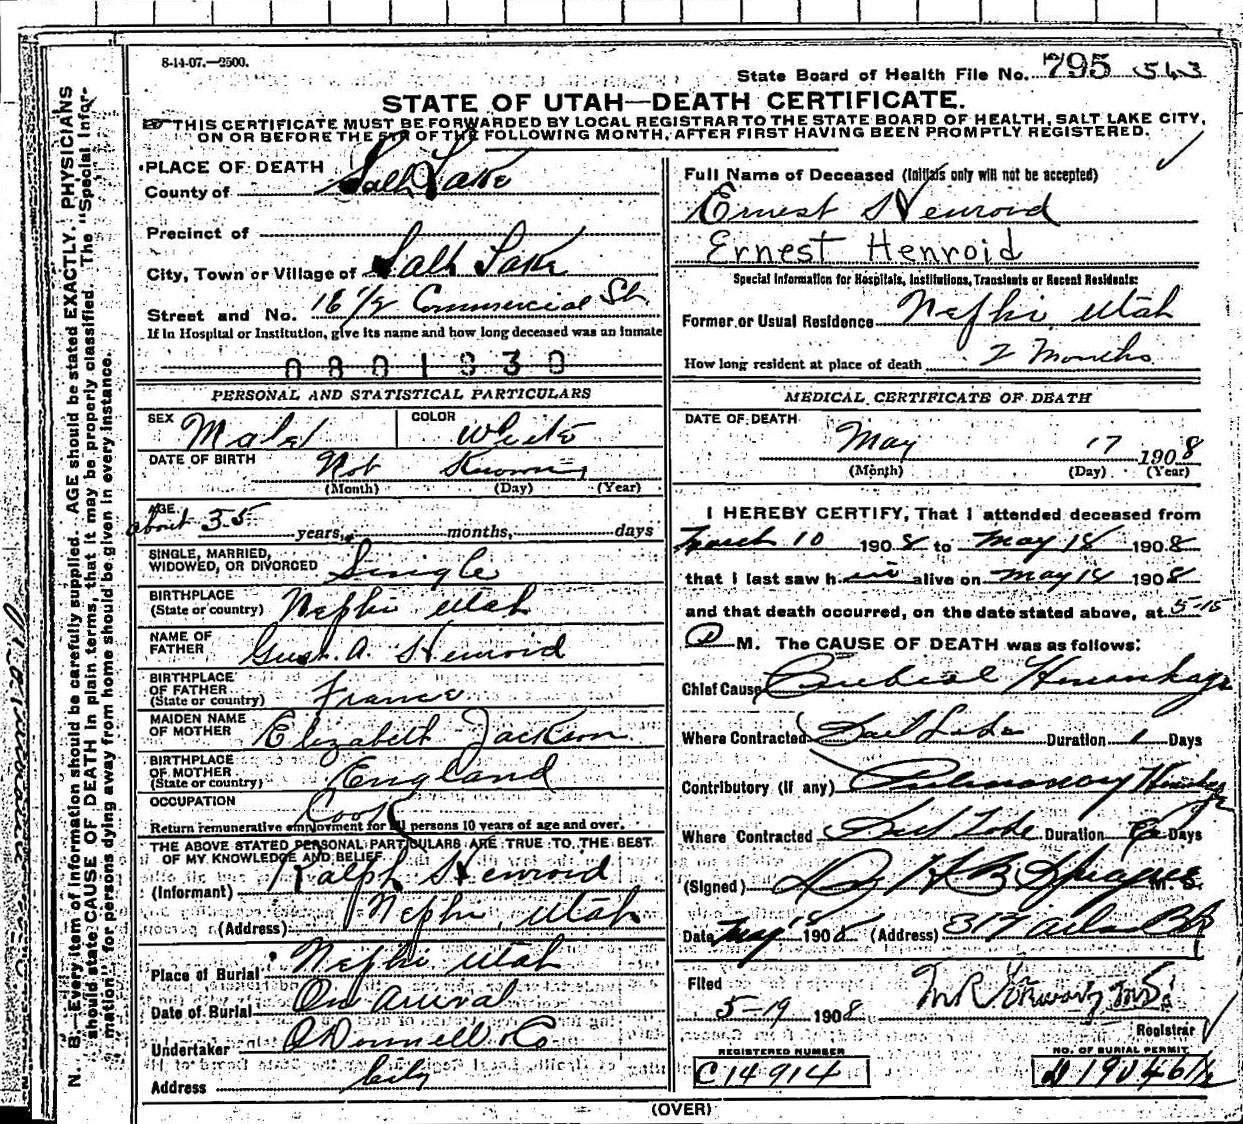 8-14-07.—2500.
State Board of Health File No. 795 543
STATE OF UTAH—DEATH CERTIFICATE.
THIS CERTIFICATE MUST BE FORWARDED BY LOCAL REGISTRAR TO THE STATE BOARD OF HEALTH, SALT LAKE CITY,
ON OR BEFORE THE 5TH OF THE FOLLOWING MONTH, AFTER FIRST HAVING BEEN PROMPTLY REGISTERED.
PLACE OF DEATH
County of Salt Lake
Precinct of
City, Town or Village of Salt Lake
Street and No. 16 1/2 Commercial St.
If in Hospital or Institution, give its name and how long deceased was an inmate
0801930
PERSONAL AND STATISTICAL PARTICULARS
SEX Male
COLOR White
DATE OF BIRTH Not Known
(Month) (Day) (Year)
AGE about 35 years, months, days
SINGLE, MARRIED,
WIDOWED, OR DIVORCED Single
BIRTHPLACE
(State or country) Nephi Utah
NAME OF
FATHER Gust. A. Henroid
BIRTHPLACE
OF FATHER
(State or country) France
MAIDEN NAME
OF MOTHER Elizabeth Jackson
BIRTHPLACE
OF MOTHER
(State or country) England
OCCUPATION Cook
Return remunerative employment for all persons 10 years of age and over.
THE ABOVE STATED PERSONAL PARTICULARS ARE TRUE TO THE BEST
OF MY KNOWLEDGE AND BELIEF
(Informant) Ralph Henroid
(Address) Nephi, Utah
Place of Burial Nephi Utah
Date of Burial On Arrival
Undertaker O'Donnell & Co
Address City
Full Name of Deceased (Initials only will not be accepted)
Ernest Henroid
Ernest Henroid
Special Information for Hospitals, Institutions, Transients or Recent Residents:
Former or Usual Residence Nephi Utah
How long resident at place of death 2 Months
MEDICAL CERTIFICATE OF DEATH
DATE OF DEATH
May 17 1908
(Month) (Day) (Year)
I HEREBY CERTIFY, That I attended deceased from
March 10 1908 to May 18 1908
that I last saw him alive on May 14 1908
and that death occurred, on the date stated above, at 5-15
P M. The CAUSE OF DEATH was as follows:
Chief Cause Cerebral Hemorrhage
Where Contracted Salt Lake Duration 1 Days
Contributory (if any) Pulmonary
Where Contracted Salt Lake Duration Days
(Signed) Dr H B Sprague M. D.
Date May 18 1908 (Address) 317
Filed
5-19 1908
Registrar
REGISTERED NUMBER
C14914
NO. OF BURIAL PERMIT
(OVER)
N. B. Every item of information should be carefully supplied. AGE should be stated EXACTLY. PHYSICIANS
should state CAUSE OF DEATH in plain terms, that it may be properly classified. The "Special Infor-
mation" for persons dying away from home should be given in every instance.